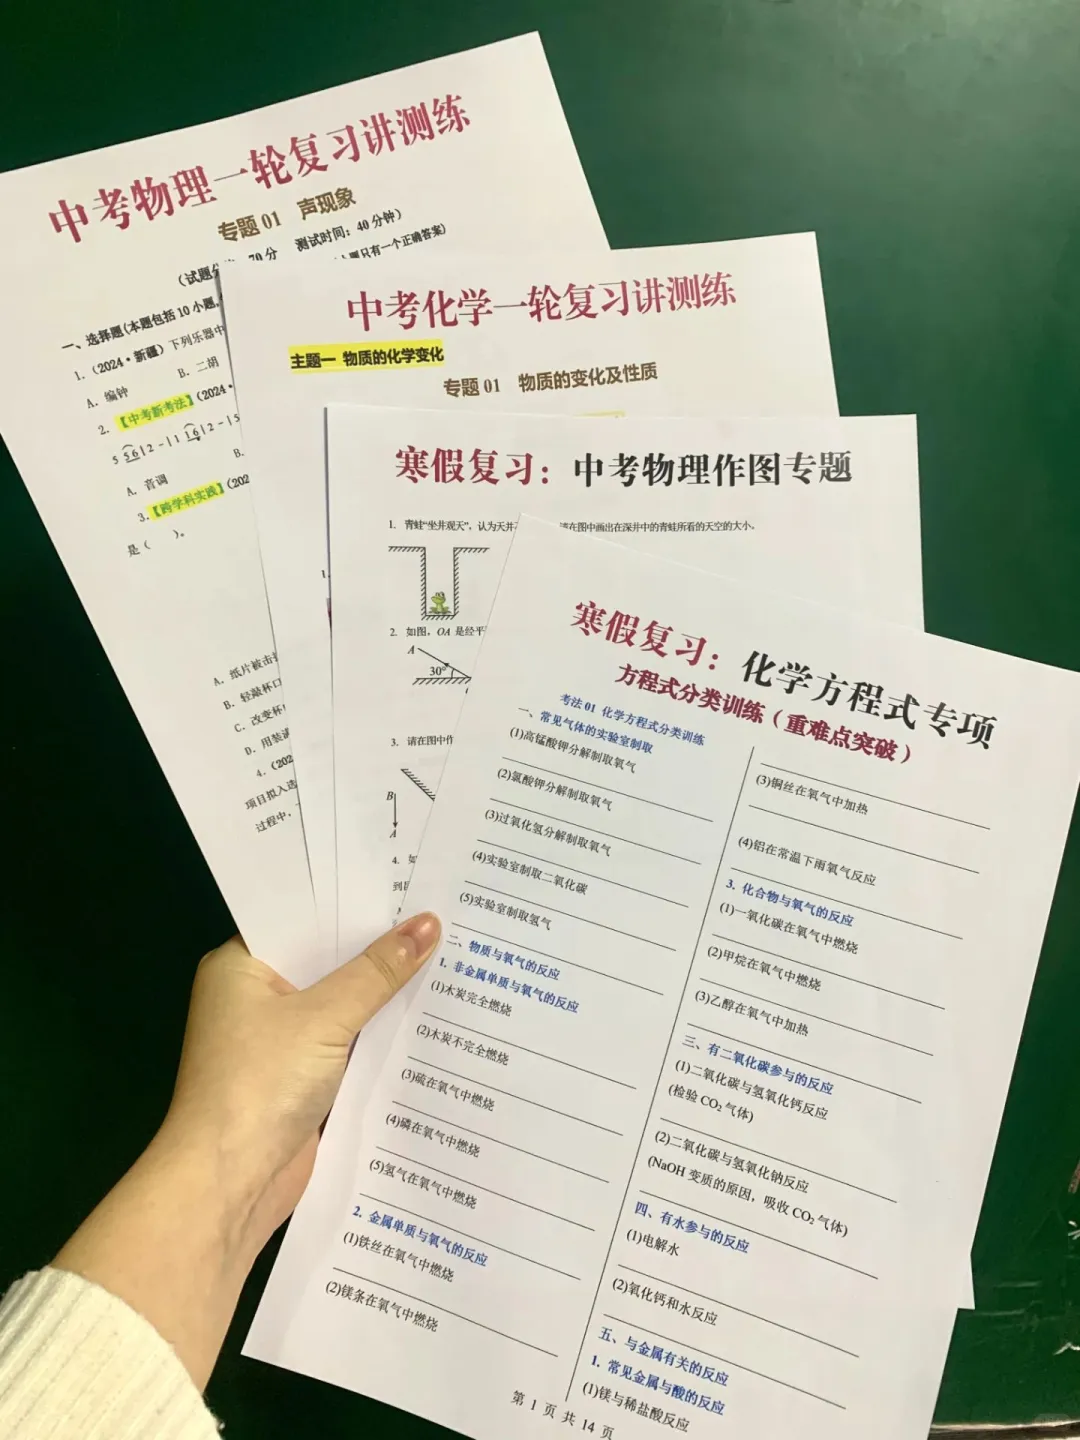 中考物理一轮复习讲测练
专题 01 声现象
(试题分 70 分 测试时间：40 分钟)
只有一个正确答案)
一、选择题(本题包括 10 小题,
1.（2024·新疆）下列乐器中
A. 编钟 B. 二胡
2.【中考新考法】(2024·
5 5 6 | 2 - | 1 1 6 | 2 - | 5
A. 音调 B.
3.【跨学科实践】(202
是（ ）。
A. 纸片被击
B. 轻敲杯口
C. 改变杯
D. 用装满
4.（202
项目拟入选
过程中，
中考化学一轮复习讲测练
主题一 物质的化学变化
专题 01 物质的变化及性质
1.
寒假复习：中考物理作图专题
1. 青蛙“坐井观天”，认为天井 请在图中画出在深井中的青蛙所看的天空的大小。
2. 如图，OA 是经平
A
30°
3. 请在图中作
B
A
4. 如
到
寒假复习：化学方程式专项
方程式分类训练（重难点突破）
考法 01 化学方程式分类训练
一、常见气体的实验室制取
(1)高锰酸钾分解制取氧气
(2)氯酸钾分解制取氧气
(3)过氧化氢分解制取氧气
(4)实验室制取二氧化碳
(5)实验室制取氢气
二、物质与氧气的反应
1. 非金属单质与氧气的反应
(1)木炭完全燃烧
(2)木炭不完全燃烧
(3)硫在氧气中燃烧
(4)磷在氧气中燃烧
(5)氢气在氧气中燃烧
2. 金属单质与氧气的反应
(1)铁丝在氧气中燃烧
(2)镁条在氧气中燃烧
(3)铜丝在氧气中加热
(4)铝在常温下雨氧气反应
3. 化合物与氧气的反应
(1)一氧化碳在氧气中燃烧
(2)甲烷在氧气中燃烧
(3)乙醇在氧气中加热
三、有二氧化碳参与的反应
(1)二氧化碳与氢氧化钙反应
(检验 CO₂ 气体)
(2)二氧化碳与氢氧化钠反应
(NaOH 变质的原因，吸收 CO₂ 气体)
四、有水参与的反应
(1)电解水
(2)氧化钙和水反应
五、与金属有关的反应
1. 常见金属与酸的反应
(1)镁与稀盐酸反应
第 1 页 共 14 页